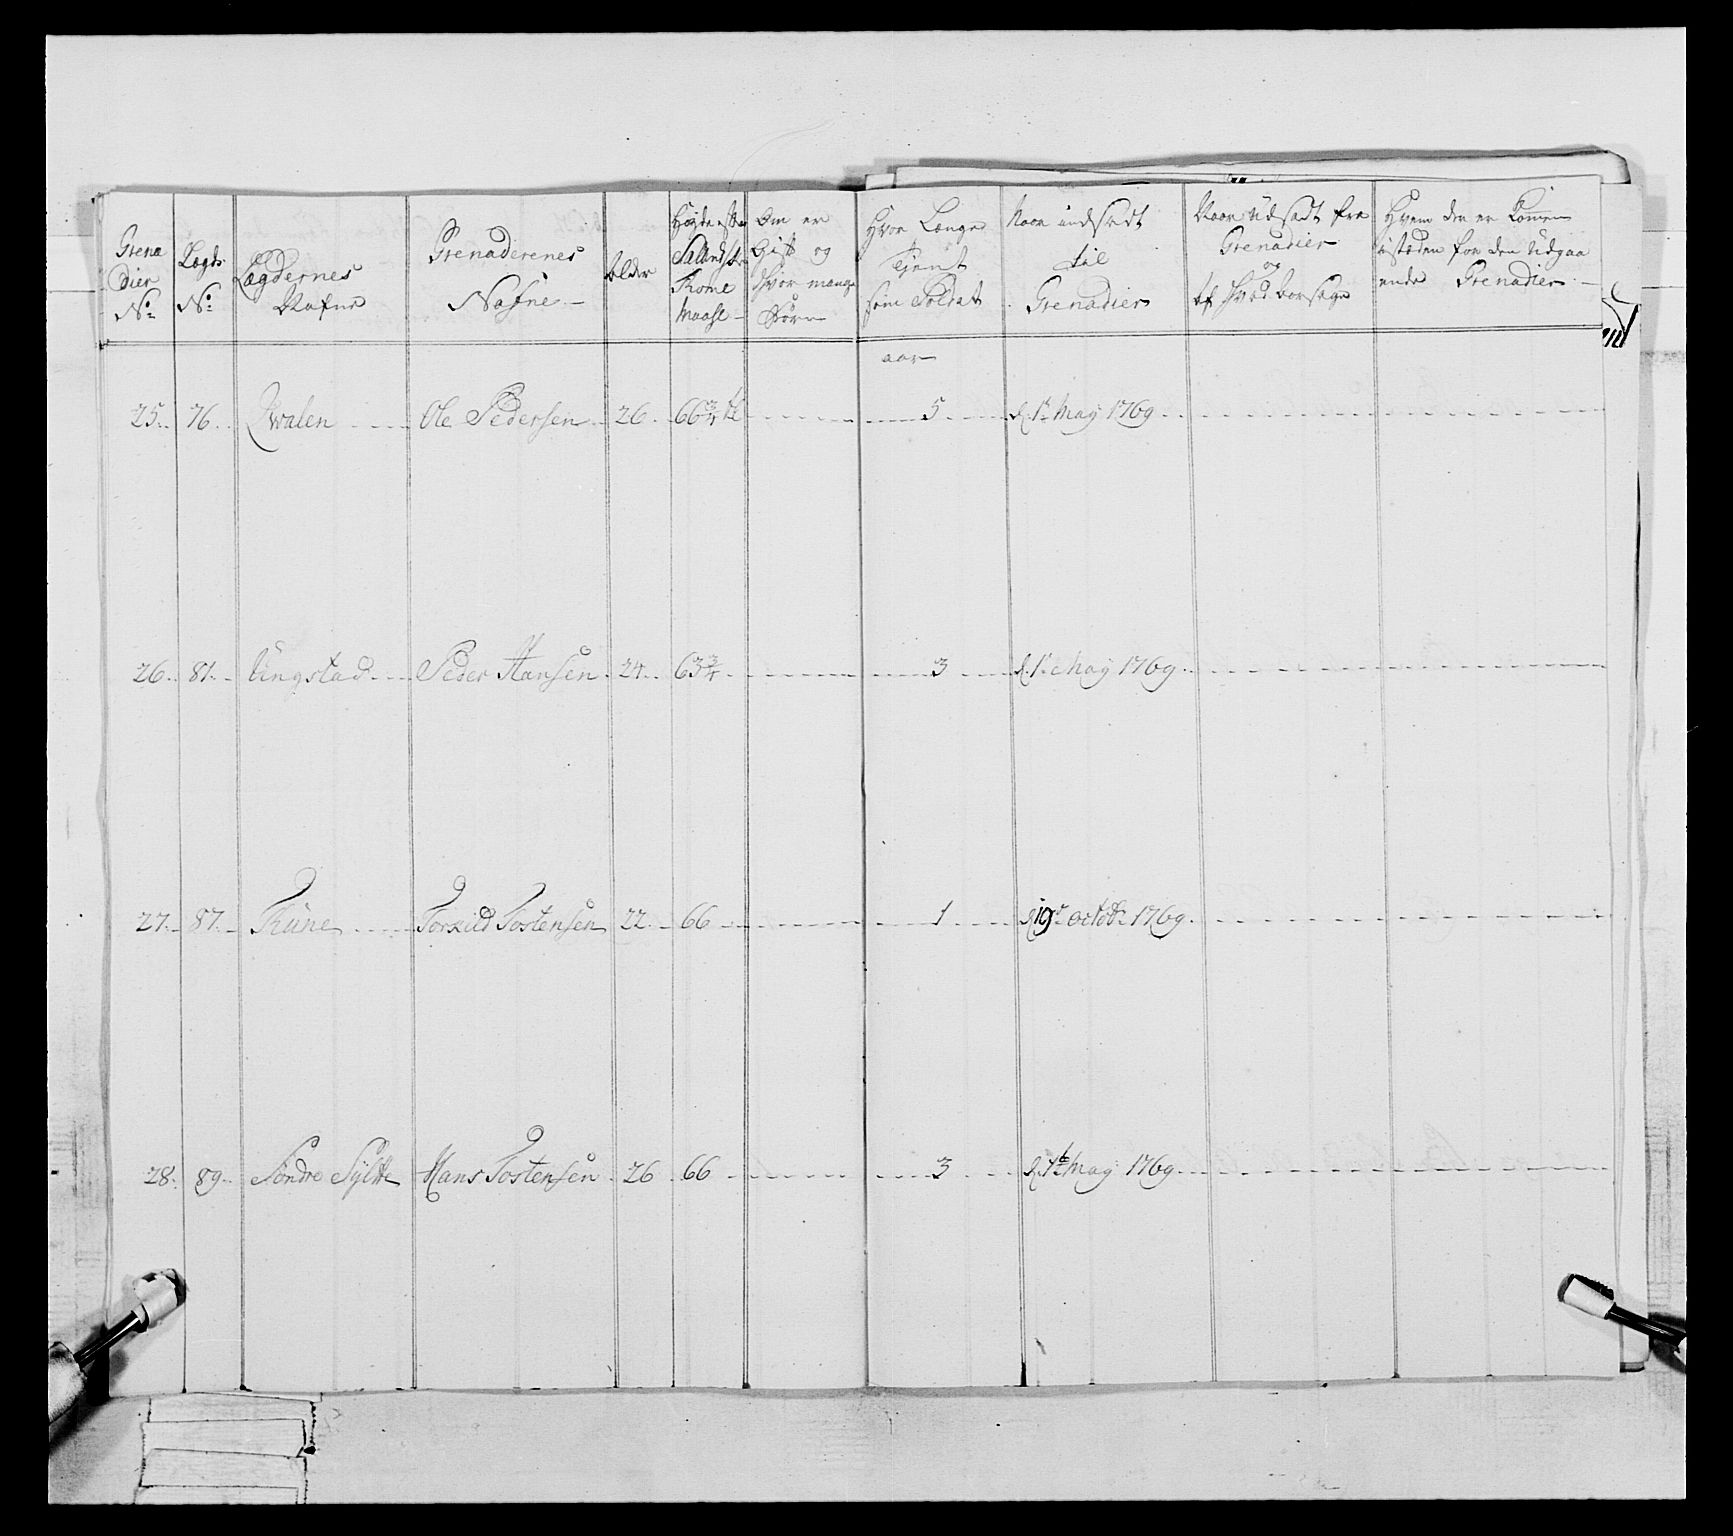 Grena
dier
No
Lægds
No
Lægdernes
Nafne
Grenaderenes
Nafne
Alder
Høyde efter
Tomme
Maasl
Om er
Gift og
Hvor mange
Børn
Hvor Længe
Tjent
som Soldat
Naar indsædt
til
Grenadier
Naar udsadt fra
Grenadier
og
af Hvad Aarsage
Hvem der er kommen
isteden for den udgaa
ende Grenadier
aar
25 76 Qvalen Ole Pedersen 26 66 3/4 5 d. 1 May 1769
26 81 Ungstad Peder Hansen 24 63 3/4 3 d. 1 May 1769
27 87 Thune Torkild Tostensen 22 66 1 d 19 octobr 1769
28 89 Søndre Sylte Hans Tostensen 26 66 3 d. 1 May 1769